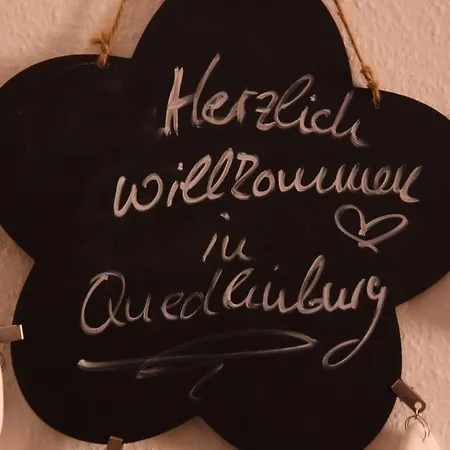 Herzlich
willkommen
in
Quedlinburg